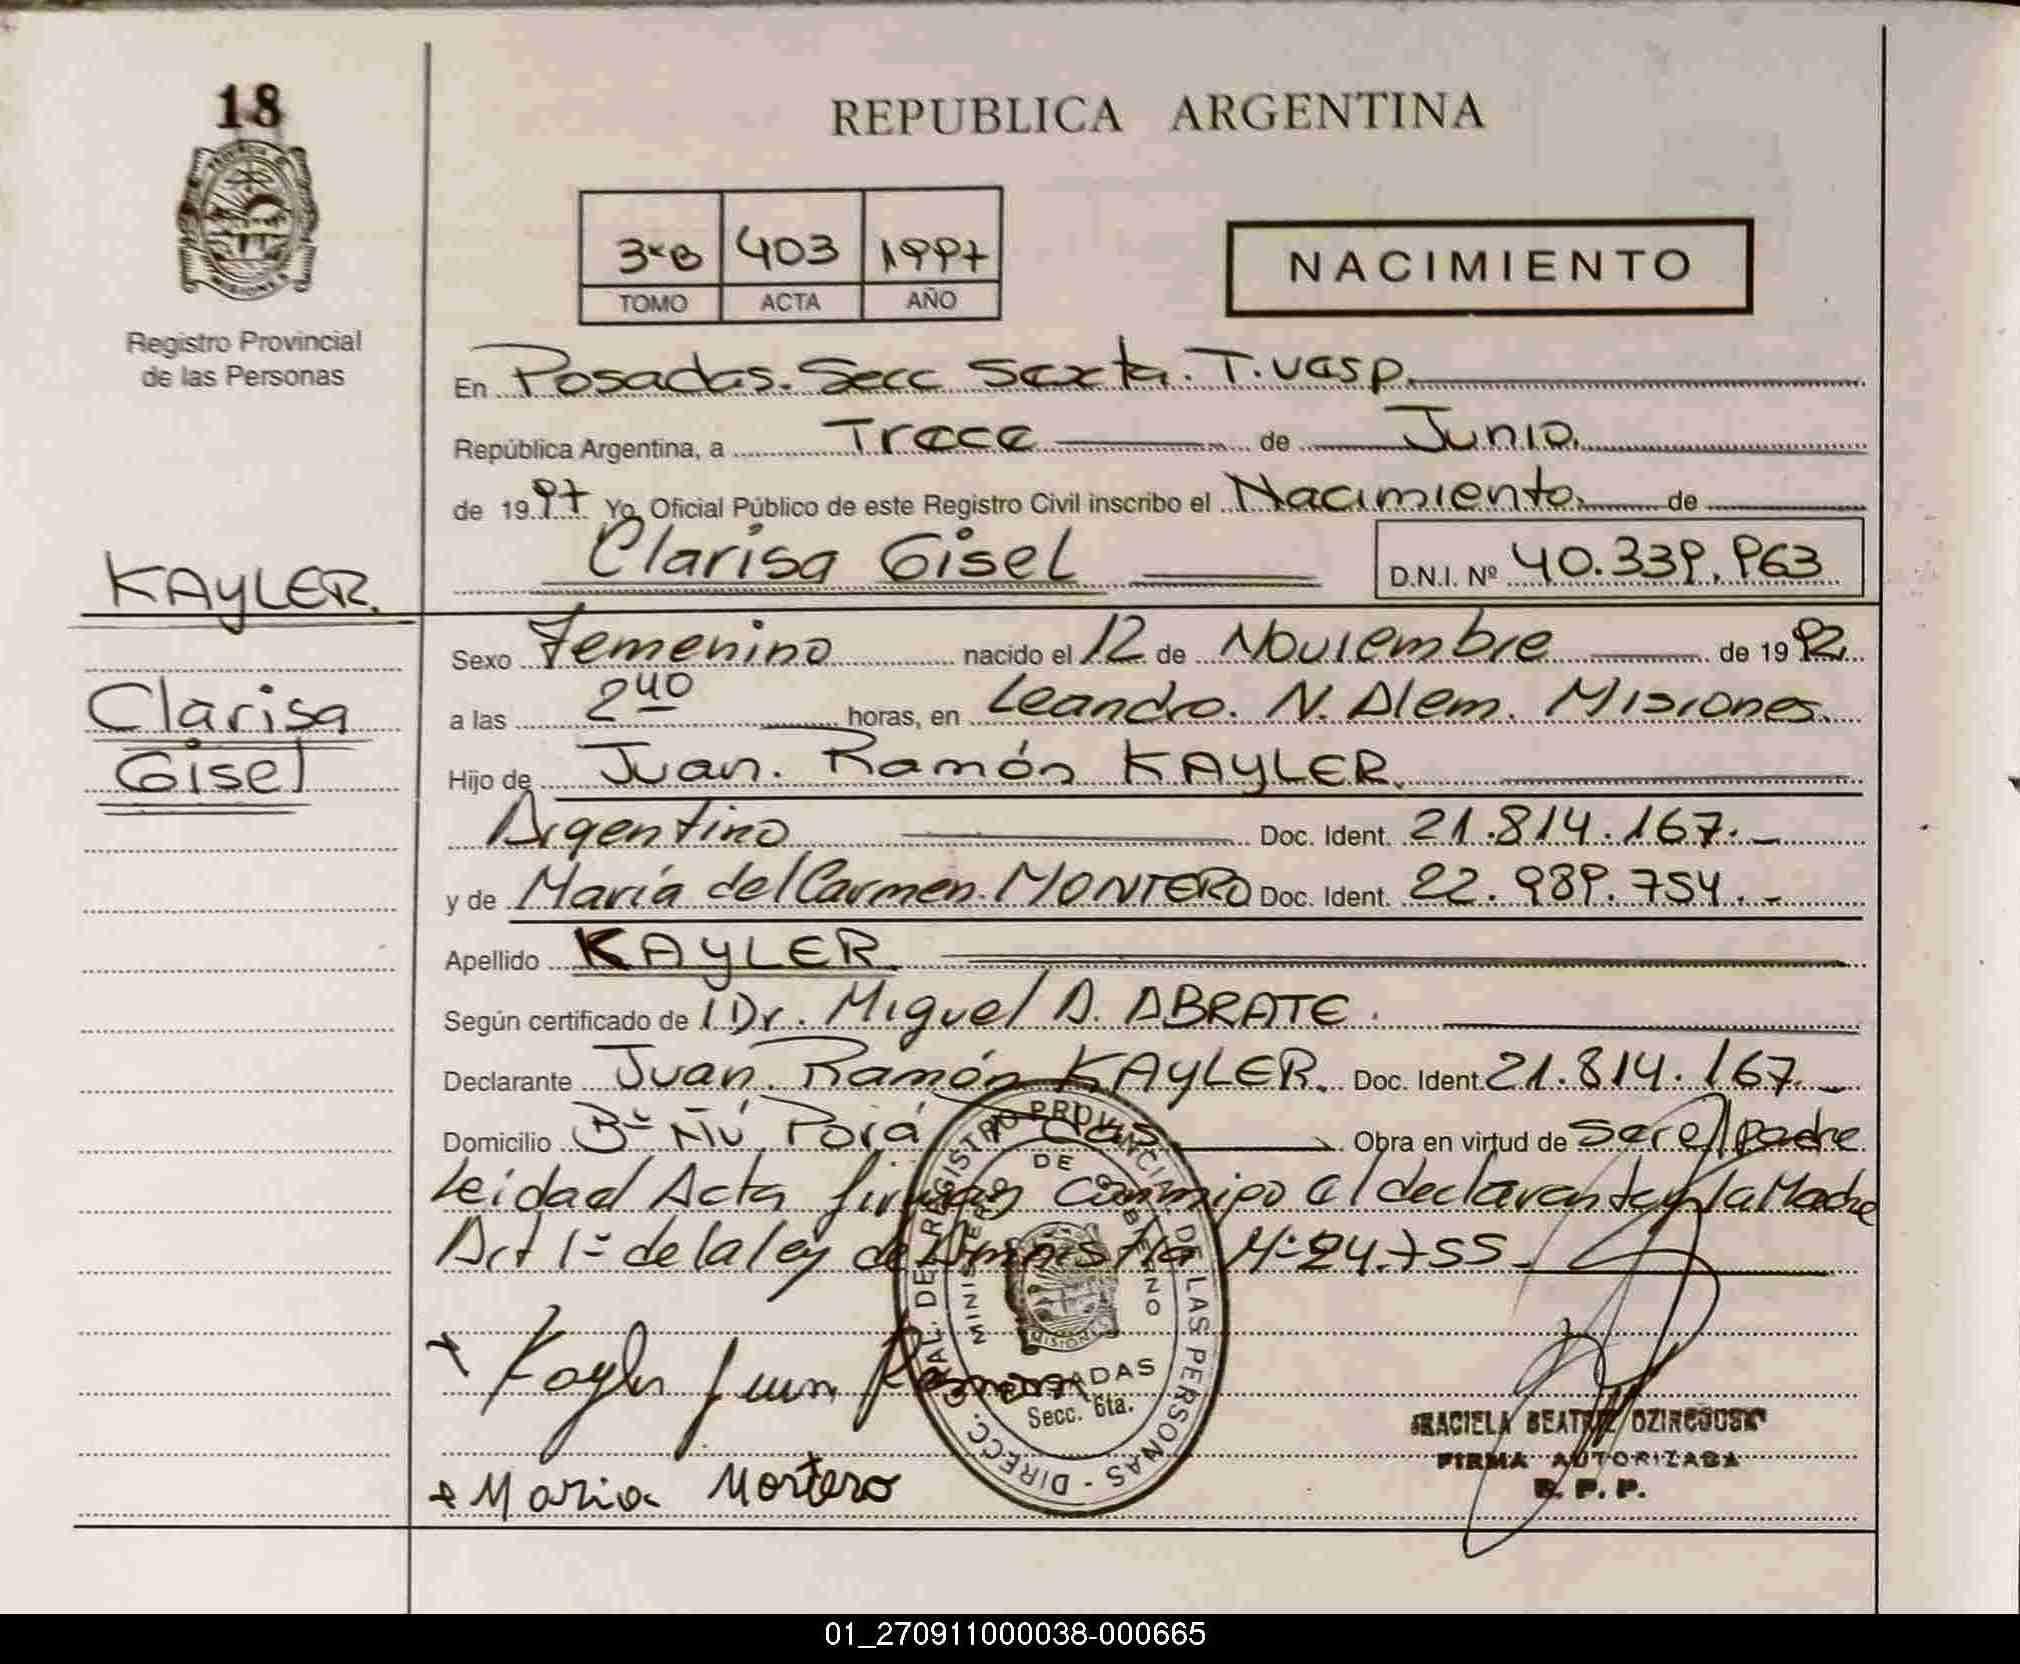 18
REPUBLICA ARGENTINA
3ºB 403 1997
TOMO ACTA AÑO
NACIMIENTO
Registro Provincial
de las Personas
En Posadas. Secc Sexta. T. vesp.
República Argentina, a Trece de Junio.
de 1997 Yo Oficial Público de este Registro Civil inscribo el Nacimiento. de
Clarisa Gisel D.N.I. Nº 40.339.963
KAYLER.
Clarisa
Gisel
Sexo Femenino nacido el 12 de Noviembre de 1992
a las 2 40 horas, en Leandro. N. Alem. Misiones.
Hijo de Juan. Ramón KAYLER.
Argentino Doc. Ident. 21.814.167.-
y de María del Carmen. MONTERO Doc. Ident. 22.989.754.-
Apellido KAYLER
Según certificado de Dr. Miguel A. ABRATE.
Declarante Juan. Ramón KAYLER. Doc. Ident. 21.814.167.-
Domicilio Bº Ñú Porá Pdas. Obra en virtud de ser el padre
Leida el Acta firman conmigo el declarante y la Madre
Art 1º de la ley de Amnistia Nº 24.755.
Kayler Juan Ramon
Maria Montero
DIRECC. GRAL. DE REGISTRO PROVINCIAL DE LAS PERSONAS
MINISTERIO DE GOBIERNO
MISIONES
POSADAS
Secc. 6ta.
GRACIELA BEATRIZ
FIRMA AUTORIZADA
R. P. P.
01_270911000038-000665